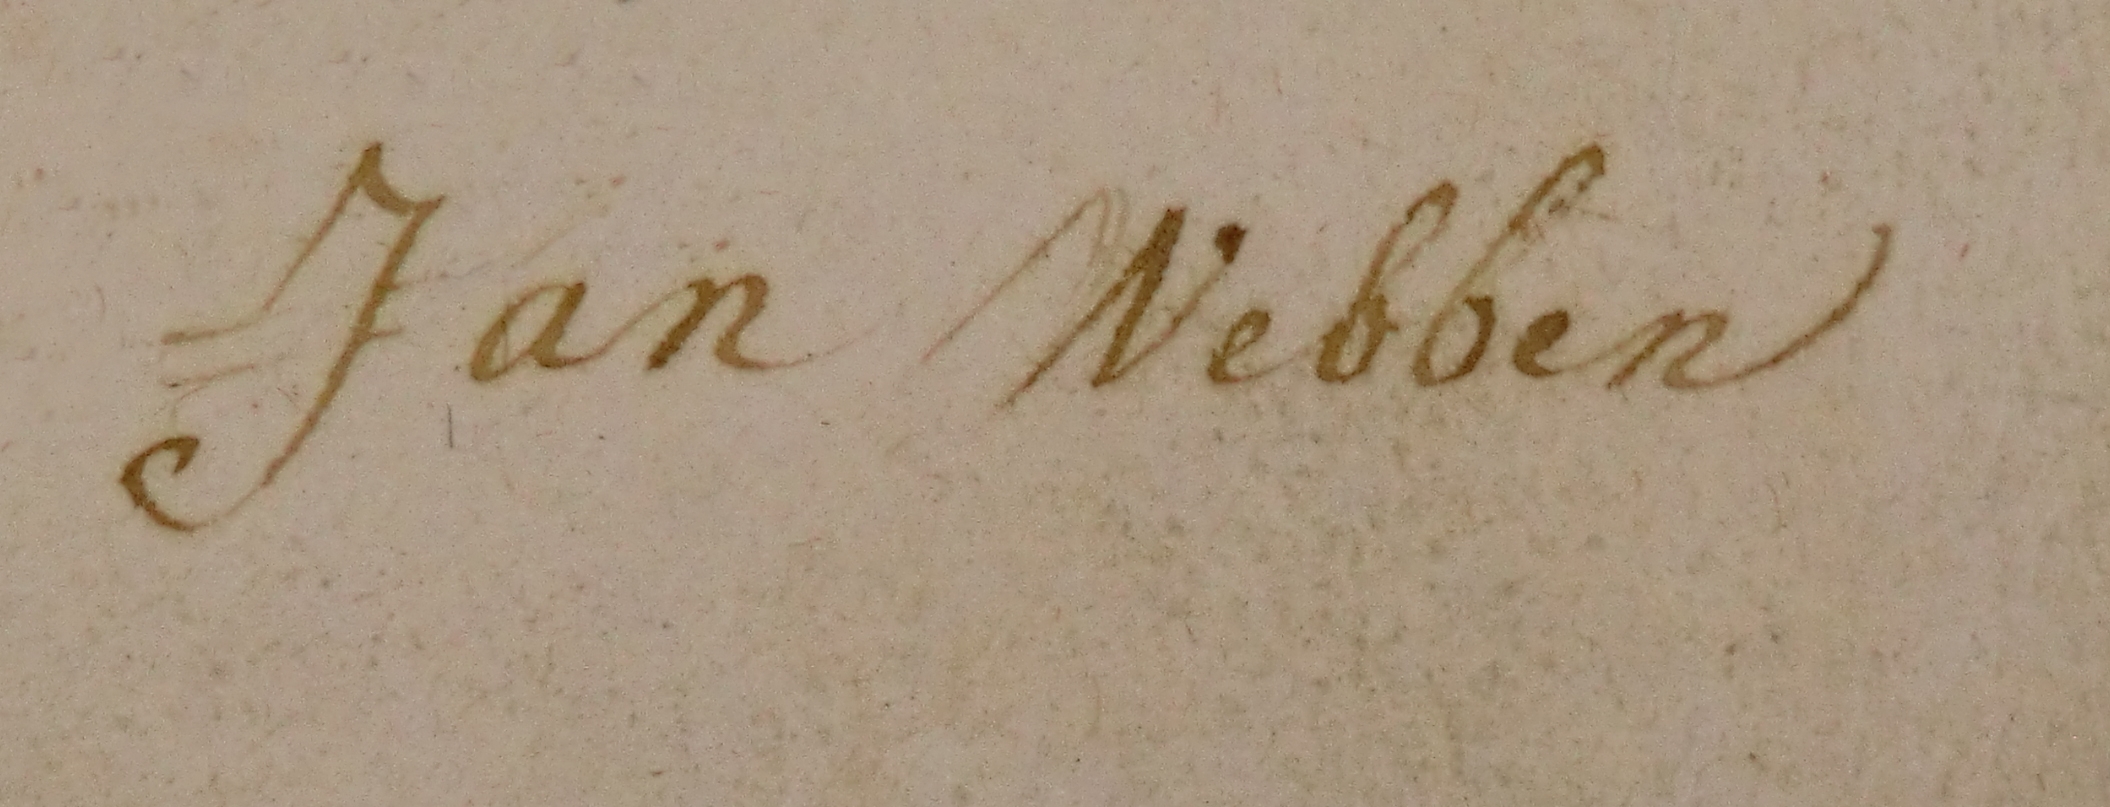 Jan Webben